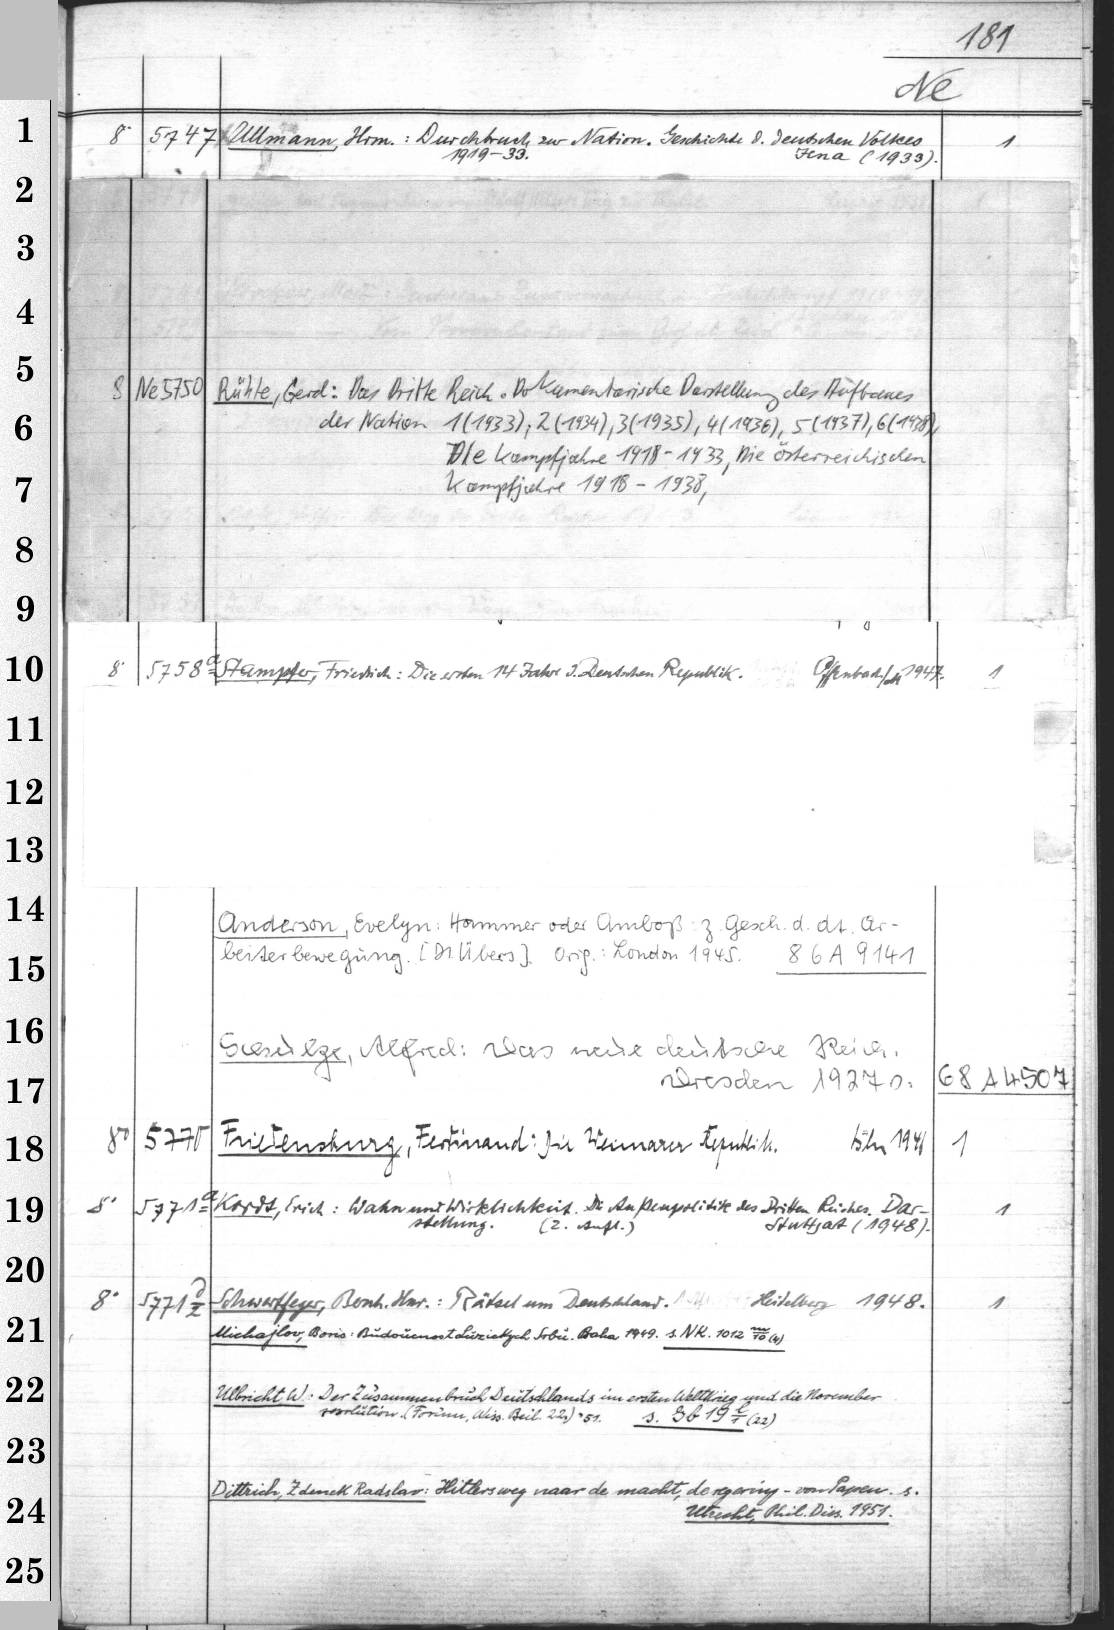 181
Ne
1
8° 5747 Ullmann, Hrm.: Durchbruch zur Nation. Geschichte d. deutschen Volkes 1
1919-33. Jena (1933).
2
3
4
5
8 Ne 5750 Rühle, Gerd: Das Dritte Reich. Dokumentarische Darstellung des Aufbaues
6
der Nation 1(1933), 2(1934), 3(1935), 4(1936), 5(1937), 6(1938),
Die Kampfjahre 1918-1933, Die österreichischen
7
Kampfjahre 1918-1938,
8
9
10
8° 5758a Stampfer, Friedrich: Die ersten 14 Jahre d. Deutschen Republik. Offenbach/M 1947. 1
11
12
13
14
Anderson, Evelyn: Hammer oder Amboß: z. Gesch. d. dt. Ar-
15
beiterbewegung. [Dt. Übers.]. Orig.: London 1945. 86 A 9141
16
Schulze, Alfred: Das neue deutsche Reich.
17
Dresden 1927. 68 A 4507
18
8° 5770 Friedensburg, Ferdinand: Die Weimarer Republik. Köln 1946 1
19
8° 5771a Kordt, Erich: Wahn und Wirklichkeit. Die Außenpolitik des Dritten Reiches. Dar- 1
stellung. (2. Aufl.) Stuttgart (1948).
20
8° 5771 Schwertfeger, Bernh. Hnr.: Rätsel um Deutschland. Heidelberg 1948. 1
21
Michajlov, Boris: Budoucnost Lužických Srbů. Praha 1949. s. NK. 1012 m/10 (4)
22
Ulbricht W: Der Zusammenbruch Deutschlands im ersten Weltkrieg und die November
revolution. (Forum, Wiss. Beil. 22,) '51. s. (22)
23
Dittrich, Zdenek Radslav: Hitlers weg naar de macht, de regering - von Papen. s.
24
Utrecht, Phil. Diss. 1951.
25